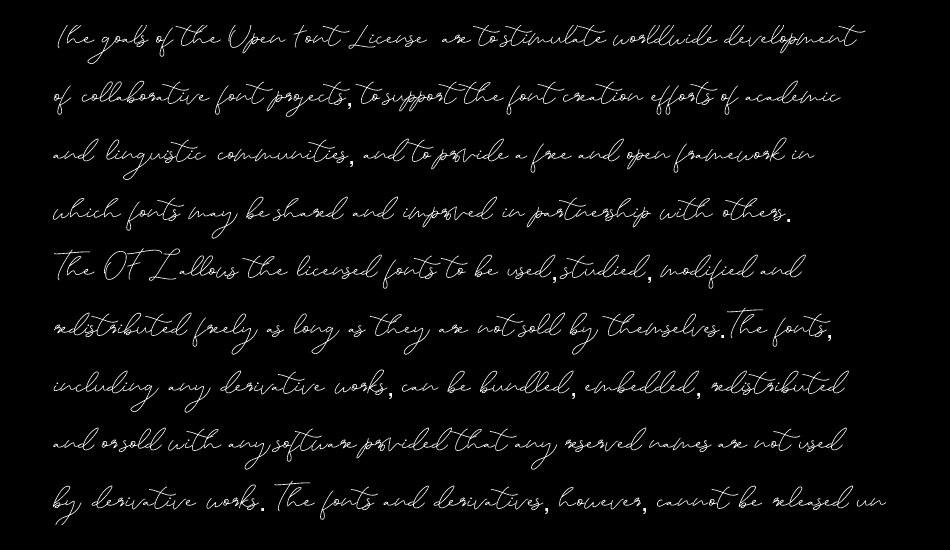 The goals of the Open Font License are to stimulate worldwide development
of collaborative font projects, to support the font creation efforts of academic
and linguistic communities, and to provide a free and open framework in
which fonts may be shared and improved in partnership with others.
The OFL allows the licensed fonts to be used, studied, modified and
redistributed freely as long as they are not sold by themselves. The fonts,
including any derivative works, can be bundled, embedded, redistributed
and or sold with any software provided that any reserved names are not used
by derivative works. The fonts and derivatives, however, cannot be released un